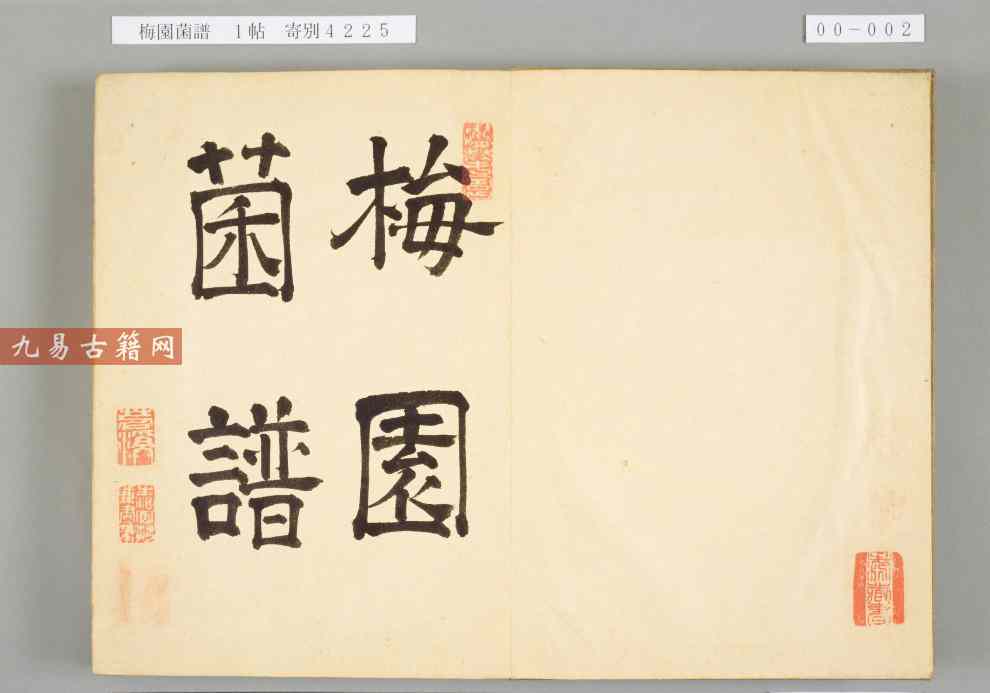 梅園菌譜　1帖　寄別4225
00-002
梅園
菌譜
九易古籍网